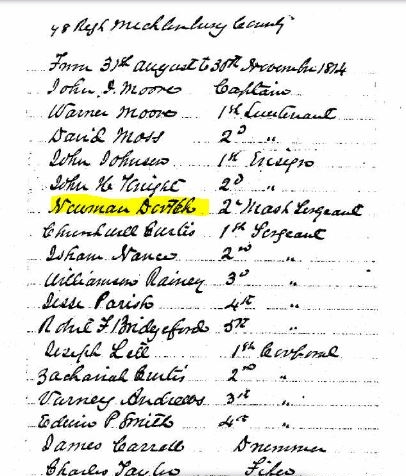 48 Regt Mecklenburg County
From 31st august to 30th November 1814
John J. Moore Captain
Warner Moore 1st Lieutenant
David Moss 2d "
John Johnson 1st Ensign
John H Knight 2d "
Newman Dortch 2d Mast Sergeant
Churchwell Curtis 1st Sergeant
Isham Nance 2nd "
Williamson Rainey 3d "
Jesse Parish 4th "
Robt F Bridgeford 5th "
Joseph Lett 1st Corporal
Zachariah Curtis 2nd "
Varney Andrews 3rd "
Edwin P Smith 4th "
James Carroll Drummer
Charles Taylor Fifer